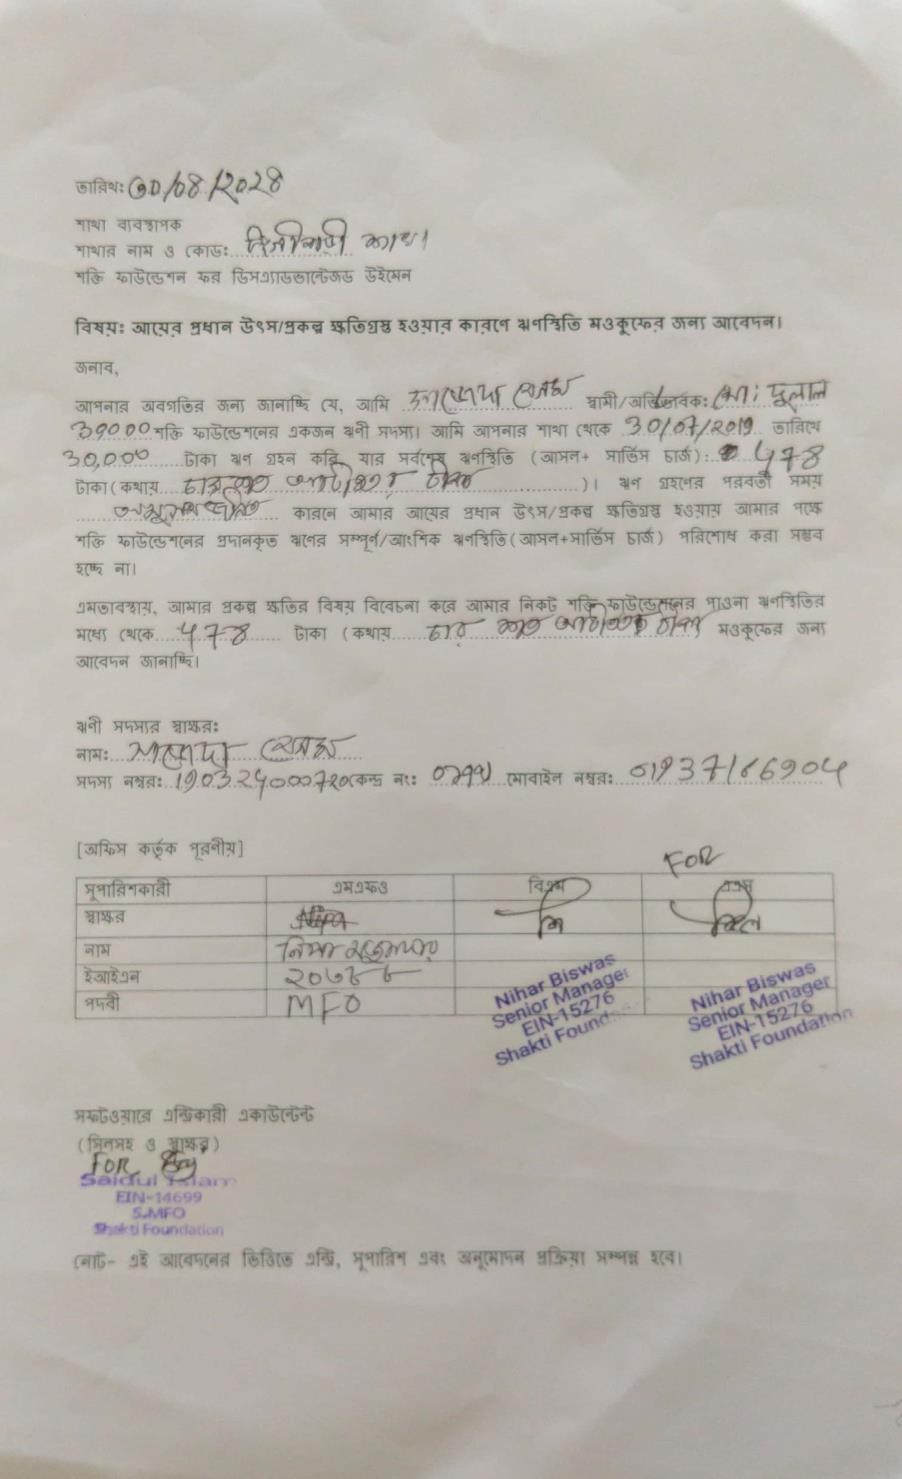 তারিখঃ ৩০/০৪/২০২৪
শাখা ব্যবস্থাপক
শাখার নাম ও কোডঃ শাখা
শক্তি ফাউন্ডেশন ফর ডিসএ্যাডভান্টেজড উইমেন
বিষয়ঃ আয়ের প্রধান উৎস/প্রকল্প ক্ষতিগ্রস্থ হওয়ার কারণে ঋণস্থিতি মওকুফের জন্য আবেদন।
জনাব,
আপনার অবগতির জন্য জানাচ্ছি যে, আমি বেগম স্বামী/অভিভাবক: মো: দুলাল
30000 শক্তি ফাউন্ডেশনের একজন ঋণী সদস্য। আমি আপনার শাখা থেকে 30/07/2019 তারিখে
30,000 টাকা ঋণ গ্রহন করি যার সর্বশেষ ঋণস্থিতি (আসল+ সার্ভিস চার্জ): ৪৭৪
টাকা(কথায় চারশত আটাত্তর টাকা )। ঋণ গ্রহণের পরবর্তী সময়
কারনে আমার আয়ের প্রধান উৎস/প্রকল্প ক্ষতিগ্রস্থ হওয়ায় আমার পক্ষে
শক্তি ফাউন্ডেশনের প্রদানকৃত ঋণের সম্পূর্ণ/আংশিক ঋণস্থিতি(আসল+সার্ভিস চার্জ) পরিশোধ করা সম্ভব
হচ্ছে না।
এমতাবস্থায়, আমার প্রকল্প ক্ষতির বিষয় বিবেচনা করে আমার নিকট শক্তি ফাউন্ডেশনের পাওনা ঋণস্থিতির
মধ্যে থেকে ৪৭৪ টাকা (কথায় চার শত আটাত্তর টাকা মওকুফের জন্য
আবেদন জানাচ্ছি।
ঋণী সদস্যর স্বাক্ষরঃ
নামঃ বেগম
সদস্য নম্বরঃ কেন্দ্র নং: মোবাইল নম্বরঃ
[অফিস কর্তৃক পূরণীয়]
FOR
সুপারিশকারী এমএফও বিএম এএম
স্বাক্ষর
নাম
ইআইএন ২০৬৮৮
পদবী MFO
Nihar Biswas
Senior Manager
EIN-15276
Shakti Found
Nihar Biswas
Senior Manager
EIN-15276
Shakti Foundation
সফটওয়ারে এন্ট্রিকারী একাউন্টেন্ট
(সিলসহ ও স্বাক্ষর)
FOR
Saidul Islam
EIN-14699
S.MFO
Shakti Foundation
নোট- এই আবেদনের ভিত্তিতে এন্ট্রি, সুপারিশ এবং অনুমোদন প্রক্রিয়া সম্পন্ন হবে।